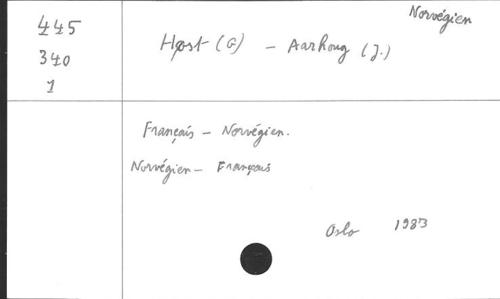 Norvégien
445
340
1
Høst (G) - Aarhoug (J.)
Français - Norvégien.
Norvégien - Français
Oslo 1983